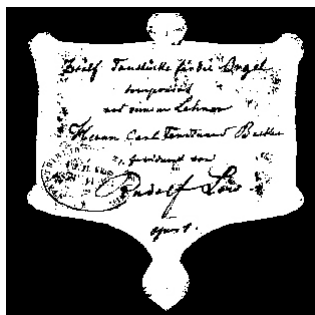 Zwölf Tonstücke für die Orgel
componirt
und seinem Lehrer
Herrn Carl Ferdinand Becker
gewidmet von
Rudolf Löw
opus 1.